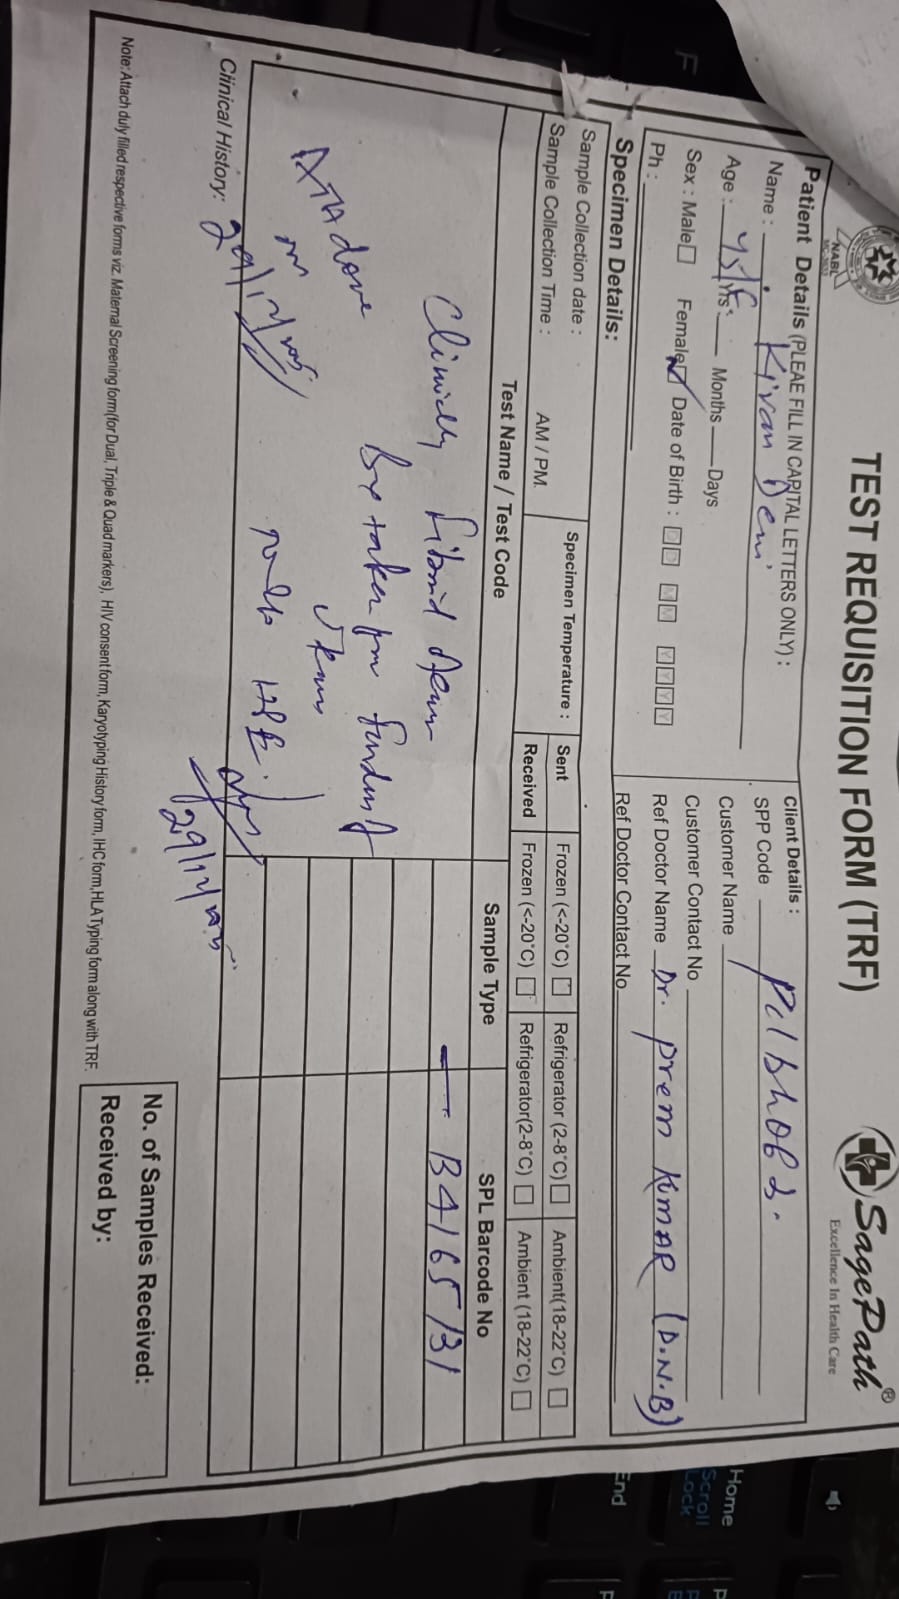 TEST REQUISITION FORM (TRF)
NABL
SagePath®
Excellence In Health Care
Patient Details (PLEAE FILL IN CAPITAL LETTERS ONLY) :
Name : Kiran Devi
Age : 45/F Yrs. Months Days
Sex : Male Female Date of Birth : D D M M Y Y Y Y
Ph :
Client Details :
SPP Code
Customer Name
Customer Contact No
Ref Doctor Name Dr. Prem Kumar (D.N.B)
Ref Doctor Contact No
Specimen Details:
Sample Collection date :
Sample Collection Time : AM / PM.
Specimen Temperature :
Sent Frozen (<-20°C) Refrigerator (2-8°C) Ambient(18-22°C)
Received Frozen (<-20°C) Refrigerator(2-8°C) Ambient (18-22°C)
Test Name / Test Code Sample Type SPL Barcode No
Clinically fibroid
B4165131
Bx taken from fundus of
HPE.
TAH done
Clinical History:
Note: Attach duly filled respective forms viz. Maternal Screening form(for Dual, Triple & Quad markers), HIV consent form, Karyotyping History form, IHC form, HLA Typing form along with TRF.
No. of Samples Received:
Received by:
F
Home
Scroll
Lock
End